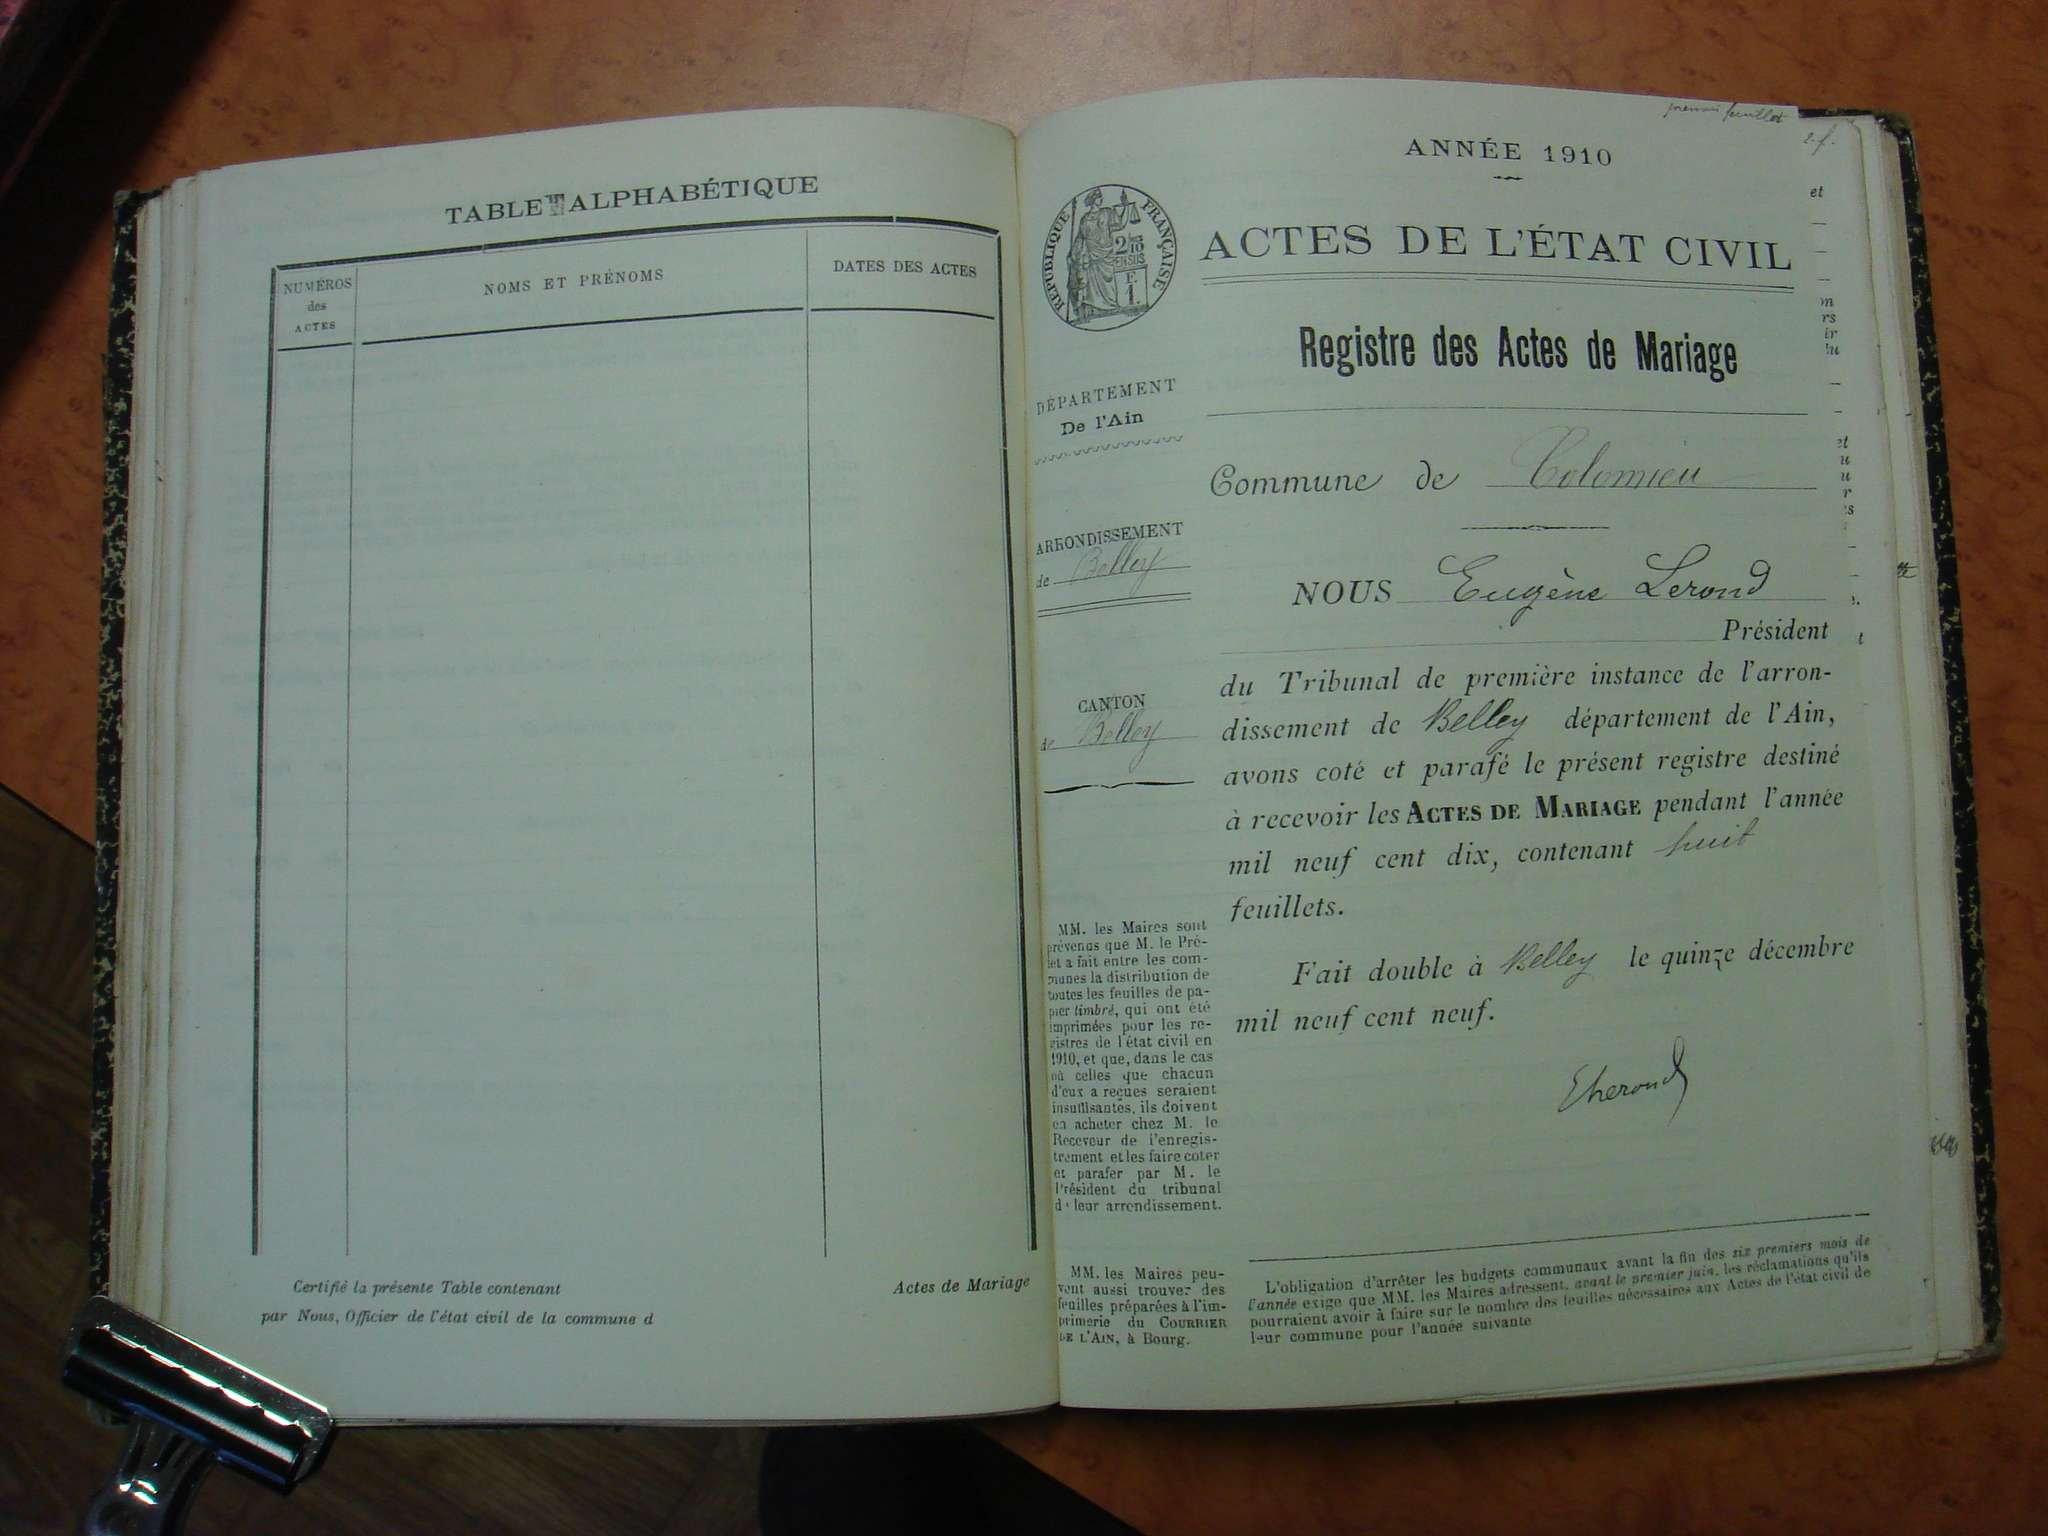 TABLE ALPHABÉTIQUE
NUMÉROS
des
ACTES
NOMS ET PRÉNOMS
DATES DES ACTES
Certifié la présente Table contenant
par Nous, Officier de l'état civil de la commune d
Actes de Mariage
premier feuillet
ANNÉE 1910
RÉPUBLIQUE FRANÇAISE
F.
1.
ACTES DE L'ÉTAT CIVIL
Registre des Actes de Mariage
DÉPARTEMENT
De l'Ain
Commune de Colomieu
ARRONDISSEMENT
de Belley
NOUS Eugène Lerond
Président
CANTON
de Belley
du Tribunal de première instance de l'arron-
dissement de Belley département de l'Ain,
avons coté et parafé le présent registre destiné
à recevoir les ACTES DE MARIAGE pendant l'année
mil neuf cent dix, contenant huit
feuillets.
Fait double à Belley le quinze décembre
mil neuf cent neuf.
MM. les Maires sont
prévenus que M. le Pré-
fet a fait entre les com-
munes la distribution de
toutes les feuilles de pa-
pier timbré, qui ont été
imprimées pour les re-
gistres de l'état civil en
1910, et que, dans le cas
où celles que chacun
d'eux a reçues seraient
insuffisantes, ils doivent
en acheter chez M. le
Receveur de l'enregis-
trement et les faire coter
et parafer par M. le
Président du tribunal
de leur arrondissement.
MM. les Maires peu-
vent aussi trouver des
feuilles préparées à l'im-
primerie du COURRIER
DE L'AIN, à Bourg.
L'obligation d'arrêter les budgets communaux avant la fin des six premiers mois de
l'année exige que MM. les Maires adressent, avant le premier juin, les réclamations qu'ils
pourraient avoir à faire sur le nombre des feuilles nécessaires aux Actes de l'état civil de
leur commune pour l'année suivante